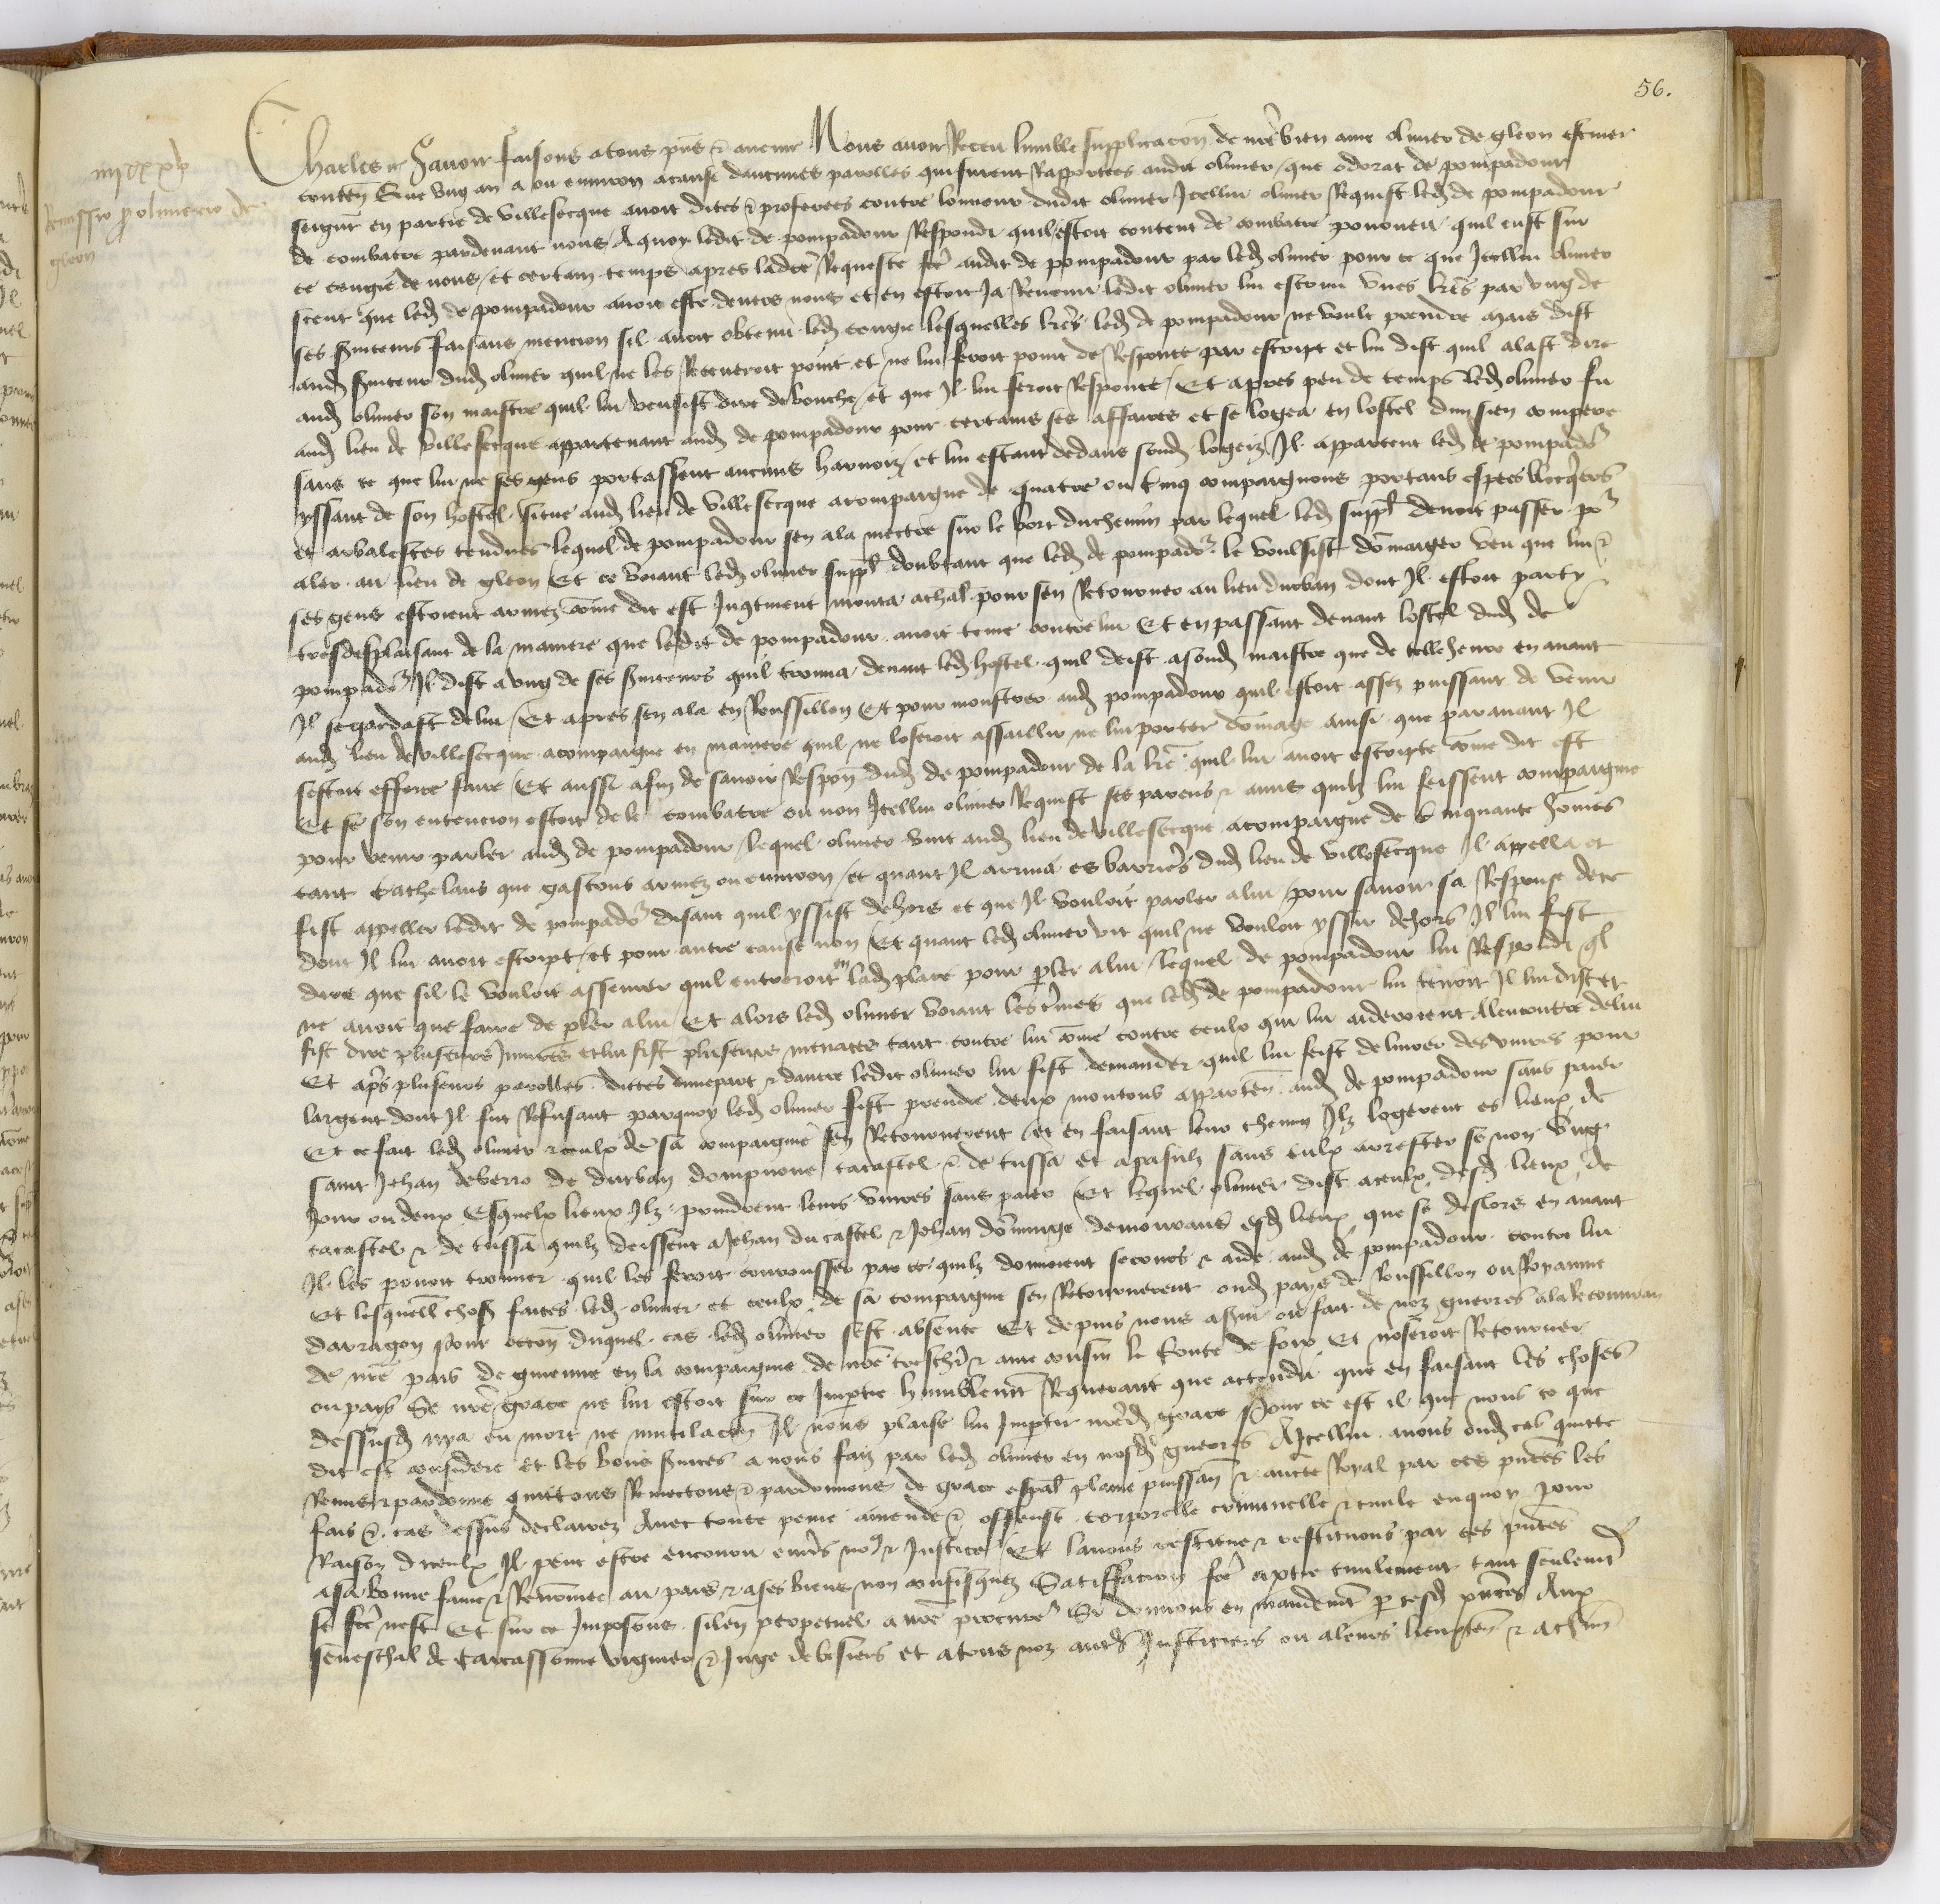 56.
iiijxx xv
Remissio pro oliuerio de
gleon
Charles etc Sauoir faisons a tous pns et auenir Nous auoir Receu lumble supplicacon de nre bien ame oliuier de gleon escuier
conten Que vng an a ou enuiron a cause daucunes parolles qui furent Rapportees audit oliuier / que odorat de pompadour
seignr en partie de villesecque auoit dites et proferees contre lonneur dudit oliuier Icellui oliuier Requist led de pompadour
de combatre pardeuant nous / A quoy ledit de pompadour Respondi quil estoit content de combatre pourueu quil eust sur
ce congie de nous / et certain temps apres ladce Requeste fce audit de pompadour par led oliuier pour ce que Icellui oliuier
sceut que led de pompadour auoit este deuers nous et en estoit Ja Reuenu ledit oliuier lui escriui vnes lres par vng de
ses suiteurs faisans mencion sil auoit obtenu led congie lesquelles lres led de pompadour ne voult prendre mais dist
aud suiteur dud oliuier quil ne les Receueroit point et ne lui feroit point de Responce par escript et lui dist quil alast dire
aud oliuier son maistre quil lui vensist dire de bouche / et que Il lui feroit Responce / Et apres peu de temps led oliuier fu
aud lieu de villesecque appartenant aud de pompadour pour certains ses affaires et se logea en lostel dun sien compere
sans ce que lui ne ses gens portassent aucuns harnoiz / et lui estant dedans sond logeiz Il apparceut led de pompador
yssant de son hostel situe aud lieu de villesecque acompaigne de quatre ou cinq compaignons portans espees bocqers
et arbalestes tendues lequel de pompadour sen ala mectre sur le bort du chemin par lequel led suppl deuoit passer pr
aler au lieu de gleon / Et ce voiant led oliuier suppl doubtant que led de pompador le voulsist dommaiger veu que lui et
ses gens estoient armez come dit est Incontment monta a cheal pour sen Retourner au lieu durban dont Il estoit party
tresdesplaisant de la maniere que ledit de pompadour auoit tenue contre lui Et en passant deuant lostel dud de
pompador Il dist a vng de ses suiteurs quil trouua deuant led hostel quil deist a sond maistre que de telle heure en auant
Il se gardast de lui / Et apres sen ala en Roussillon Et pour monstrer aud pompadour quil estoit assez puissant de venir
aud lieu de villesecque acompaigne en maniere quil ne loseroit assaillir ne lui porter domage ainsi que parauant Il
sestoit efforce faire / Et aussi afin de sauoir Respon dud de pompadour de la lre quil lui auoit escripte come dit est
Et se son entencion estoit de le combatre ou non Icellui oliuier Requist ses parens et amis quilz lui feissent compaignie
pour venir parler aud de pompadour / lequel oliuier vint aud lieu de villesecque acompaigne de cinquante homes
tant cathelans que gascons armez ou enuiron / et quant Il arriua es barrieres dud lieu de villesecque Il appella et
fist appeller ledit de pompador disant quil yssist dehors et que Il vouloit parler a lui / pour sauoir sa Response de ce
dont Il lui auoit escript / et pour autre cause non Et quant led oliuier vit quil ne vouloit yssir dehors Il lui fist
dire que sil le vouloit asseurer quil entreroit en lad place pour pler a lui / lequel de pompadour lui Respondi ql
ne auoit que faire de pler a lui Et alors led oliuier voiant les times que led de pompadour lui tenoit Il lui dist et
fist dire plusieurs Iniures et lui fist plusieurs menaces tant contre lui come contre ceulx qui lui aideroient alencontre de lui
Et aprs plusieurs parolles dictes dunepart et dautre ledit oliuier lui fist demander quil lui feist deliurer des viures pour
largent dont Il fut Refusant parquoy led oliuier fist prendre deux moutons apparten aud de pompadour sans paier
Et ce fait led oliuier et ceulx de sa compaignie sen Retournerent / et en faisant leur chemin Ilz logerent es lieux de
saint Jehan deberro de durban dompnoue cacastel et de tussa Et a pasiulz sans eulx arrester se non vng
Jour ou deux Esquelx lieux Ilz prindrent leurs viures sans paier / Et lequel oliuier dist a ceulx desd lieux de
cacastel et de tussa quilz deissent a Jehan du castel et Jehan dominge demourans esd lieux que se deslors en auant
Il les pouoit trouuer quil les feroit courousser par ce quilz donnoient secours et aide aud de pompadour contre lui
Et lesquell chos faites led oliuier et ceulx de sa compaignie sen Retournerent oud pays de Roussillon ou Royaume
darragon pour occon duquel cas led oliuier sest absente Et depuis nous a suy ou fait de noz guerres a la Recouuran
de nre pais de guienne en la compaignie de nre treschr et ame cousin le Conte de foix Et noseroit Retourner
ou pays Se nre grace ne lui estoit sur ce Impartie humblemt Requerant que actendu que en faisant les choses
dessusd nya eu mort ne mutilacon Il nous plaise lui Impartir nred grace Pour ce est il que nous ce que
dit est considere et les bons suices a nous faiz par led oliuier en nosd guerres A Icellui auons oud cas quicte
Remis et pardonne quictons Remectons et pardonnons de grace espal plaine puissan et aucte Royal par ces pntes les
fais et cas dessus declairez Auec toute peine amende et offense corporelle criminelle et ciuile en quoy pour
Raison diceulx Il peut estre encouru enuers nous et Justice / Et lauons restitue et restituons par ces pntes
a sa bonne fame et Renommee au pais et a ses biens non confisquez Satiffacion fce a partie ciuilement tant seulemt
se fce nest Et sur ce Imposons silen perpetuel a nre procureur Si donnons en mandemt p cesd pntes Aux
seneschal de Carcassonne viguier et Juge de besiers et a tous noz autrs Justiciers ou a leurs lieuxten et a chun